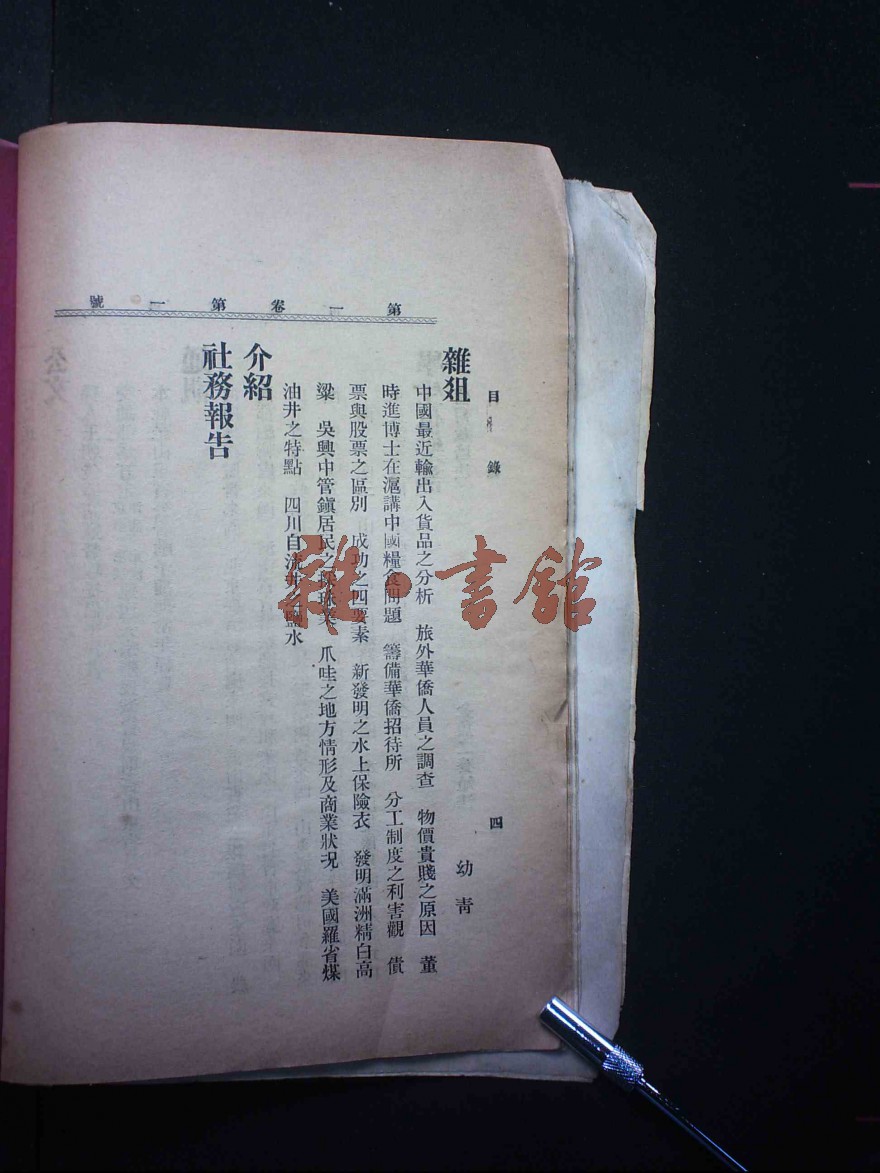 第一卷第一號
目錄 四
雜俎 幼青
中國最近輸出入貨品之分析 旅外華僑人員之調查 物價貴賤之原因 董
時進博士在滬講中國糧食問題 籌備華僑招待所 分工制度之利害觀 債
票與股票之區別 成功之四要素 新發明之水上保險衣 發明滿洲精白高
粱 吳興中管鎭居民之採珠業 爪哇之地方情形及商業狀況 美國羅省煤
油井之特點 四川自流井之鹽水
介紹
社務報告
雜·書館